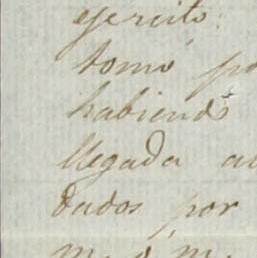 ejercito.
tomó po
habiendo
llegada al
dados por
m. ó m.